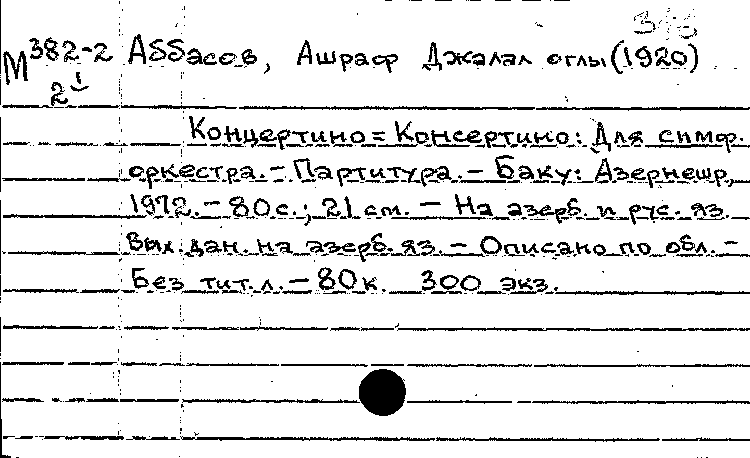 М382-2 Аббасов, Ашраф Джалал оглы (1920)
2
Концертино = Консертино: Для симф.
оркестра. - Партитура. - Баку: Азернешр,
1972. - 80 с.; 21 см. - На азерб. и рус. яз.
Вых. дан. на азерб. яз. - Описано по обл. -
Без тит. л. - 80 к. 300 экз.